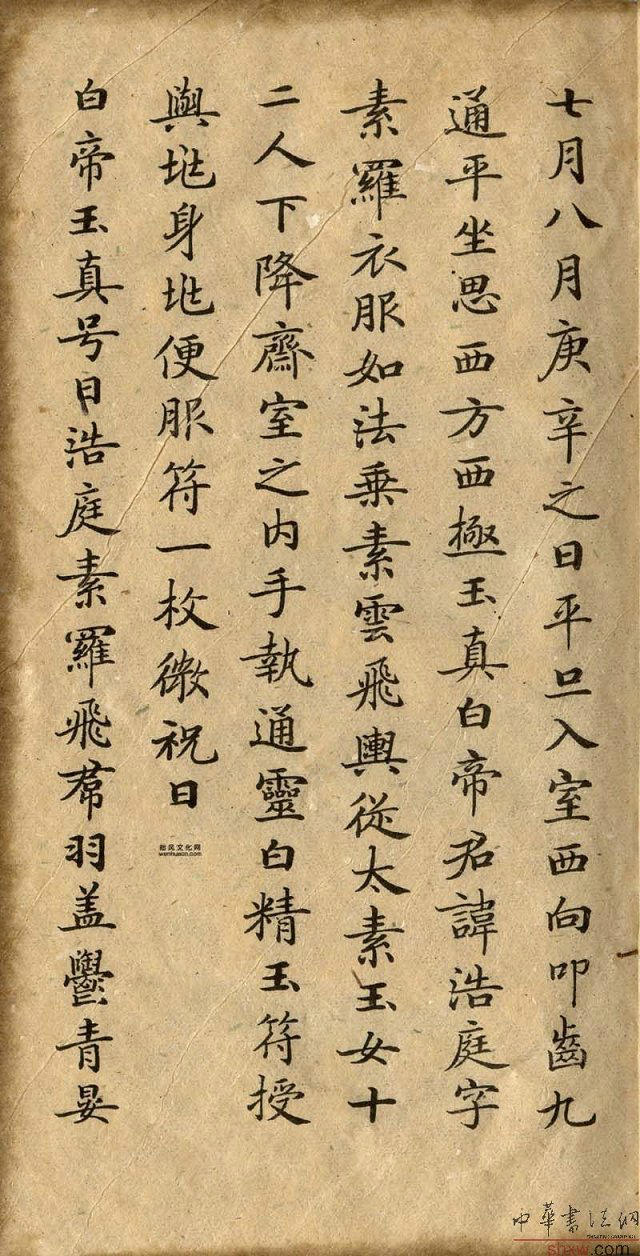 七月八月庚辛之日平旦入室西向叩齒九
通平坐思西方西極玉真白帝君諱浩庭字
素羅衣服如法乗素雲飛輿從太素玉女十
二人下降齋室之内手執通靈白精玉符授
與兆身兆便服符一枚微祝曰
白帝玉真号曰浩庭素羅飛帬羽盖鬱青晏
中華書法網
shxw.com